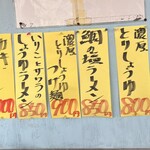 濃厚
とりしょうゆ
800円
鯛の塩ラーメン
850円
濃厚
とりしょうゆ
つけ麺
900円
いりことサンマの
しょうゆラーメン
850円